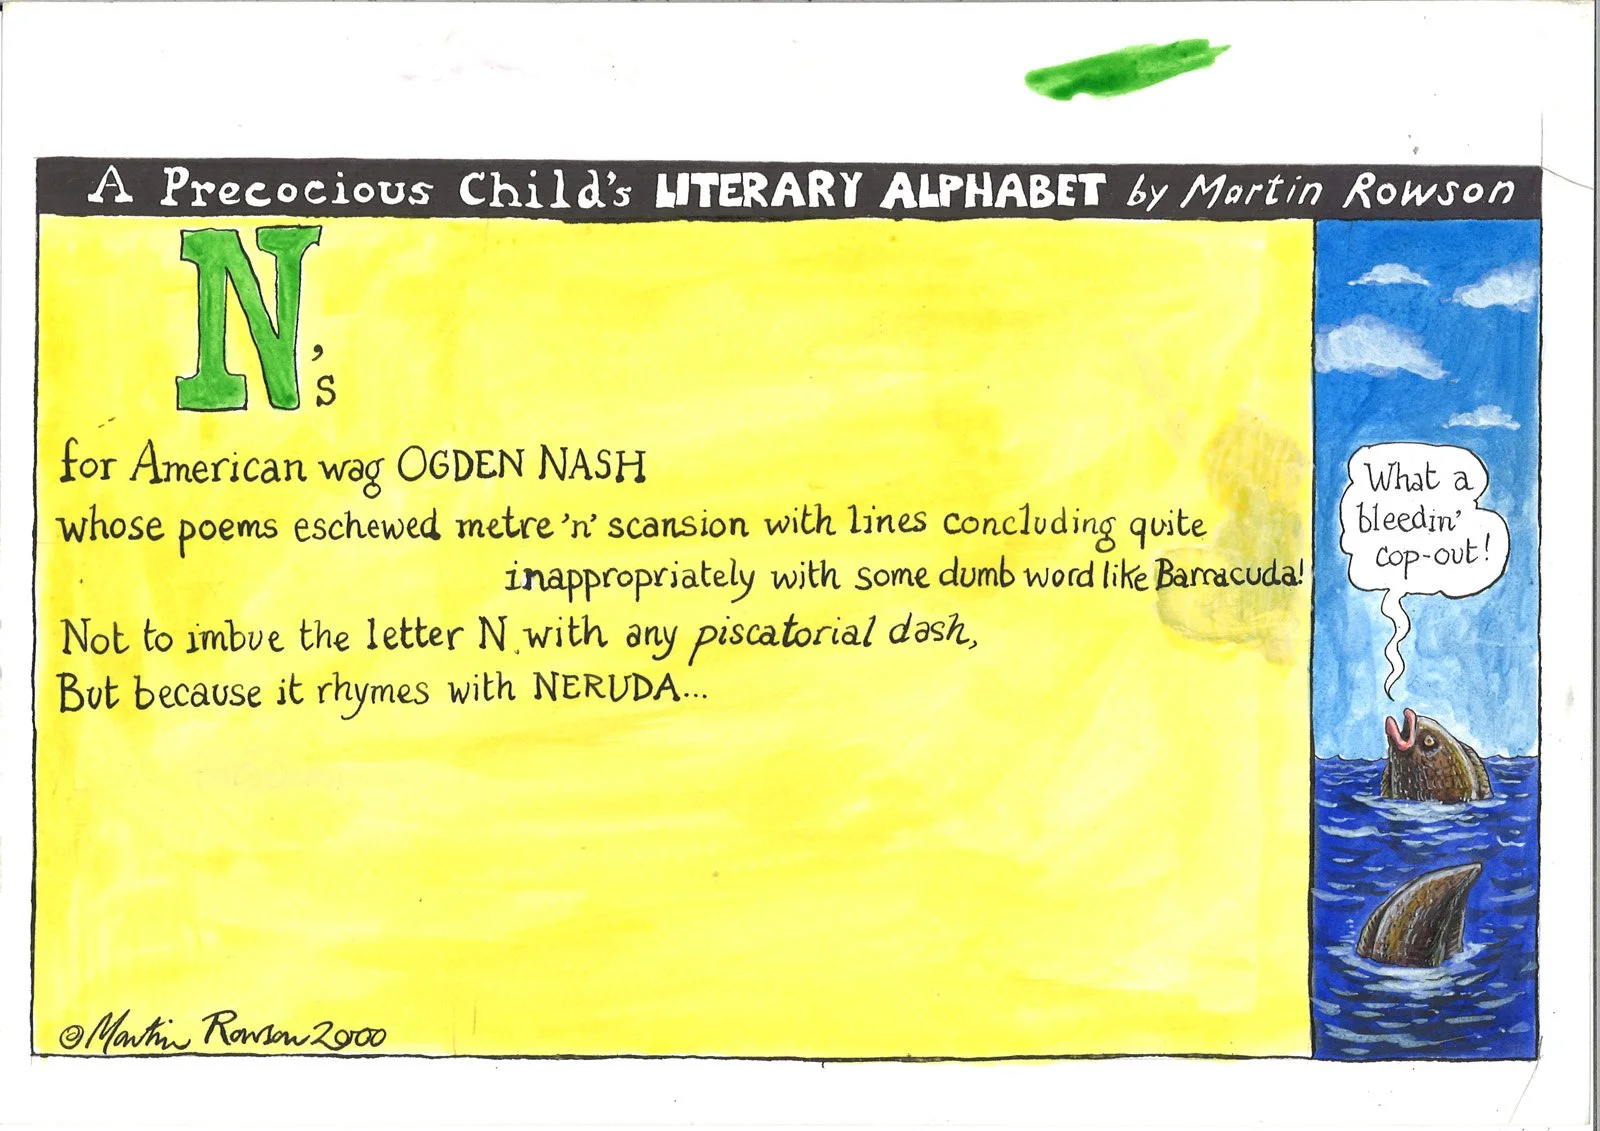 A Precocious Child's LITERARY ALPHABET by Martin Rowson
N's
for American wag OGDEN NASH
whose poems eschewed metre 'n' scansion with lines concluding quite
inappropriately with some dumb word like Barracuda!
Not to imbue the letter N with any piscatorial dash,
But because it rhymes with NERUDA...
What a
bleedin'
cop-out!
© Martin Rowson 2000